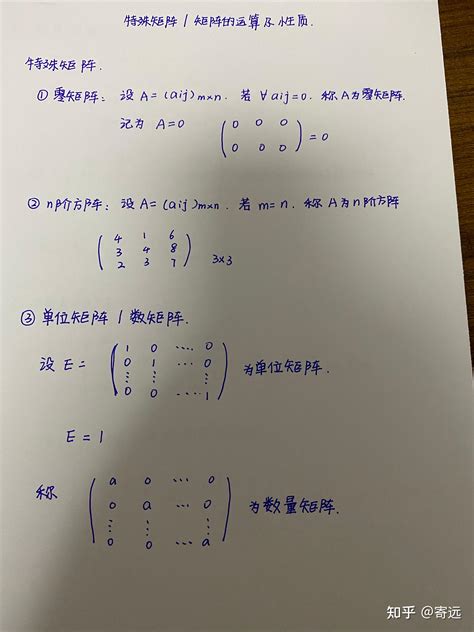 特殊矩阵 / 矩阵的运算及性质.
特殊矩阵.
① 零矩阵: 设 A = (aij)m×n. 若 ∀aij=0. 称A为零矩阵.
记为 A=0
0 0 0
0 0 0
= 0
② n阶方阵: 设 A = (aij)m×n. 若 m=n. 称A为n阶方阵
4 1 6
3 4 8
2 3 7
3×3
③ 单位矩阵 / 数矩阵.
设 E =
1 0 ···· 0
0 1 ···· 0
⋮ ⋮ ⋮
0 0 ···· 1
为单位矩阵.
E = 1
称
a 0 ··· 0
0 a ··· 0
⋮ ⋮ ⋮
0 0 ··· a
为数量矩阵.
知乎 @寄远